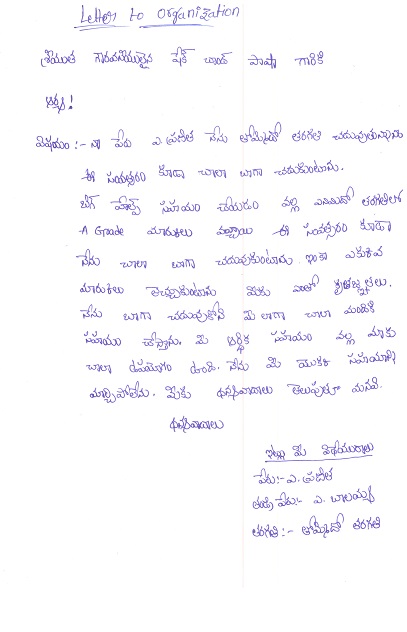 Letter to organization
శ్రీయుత గౌరవనీయులైన షేక్ చాంద్ పాషా గారికి
ఆర్యా!
విషయం :- నా పేరు ఎ. ప్రణీత నేను తొమ్మిదో తరగతి చదువుతున్నాను
ఈ సంవత్సరం కూడా చాలా బాగా చదుకుంటాను.
బిగ్ హెల్ప్ సహయం చేయడం వల్ల ఎనిమిదో తరగతిలో
A Grade మారుకులు వచ్చాయి ఈ సంవత్సరం కూడా
నేను చాలా బాగా చదువుకుంటాను. ఇంకా ఎకుకివ
మారుకులు తెచ్చుకుంటాను మీకు ఎంతో కృతజ్ఞతలు.
నేను బాగా చదువుకోని మీలాగా చాలా మందికి
సహయం చేస్తాను. మీ ఆర్థిక సహయం వల్ల మాకు
చాలా ఉపయోగం ఉంది. నేను మీ యొక్క సహయాన్ని
మార్చిపోలేను. మీకు ధన్యవాదాలు తెలుపుతూ మనవి.
ధన్యవాదాలు
ఇట్లు మీ విధేయురాలు
పేరు:- ఎ. ప్రణీత
తండ్రి పేరు:- ఎ. బాలయ్య
తరగతి :- తొమ్మిదో తరగతి